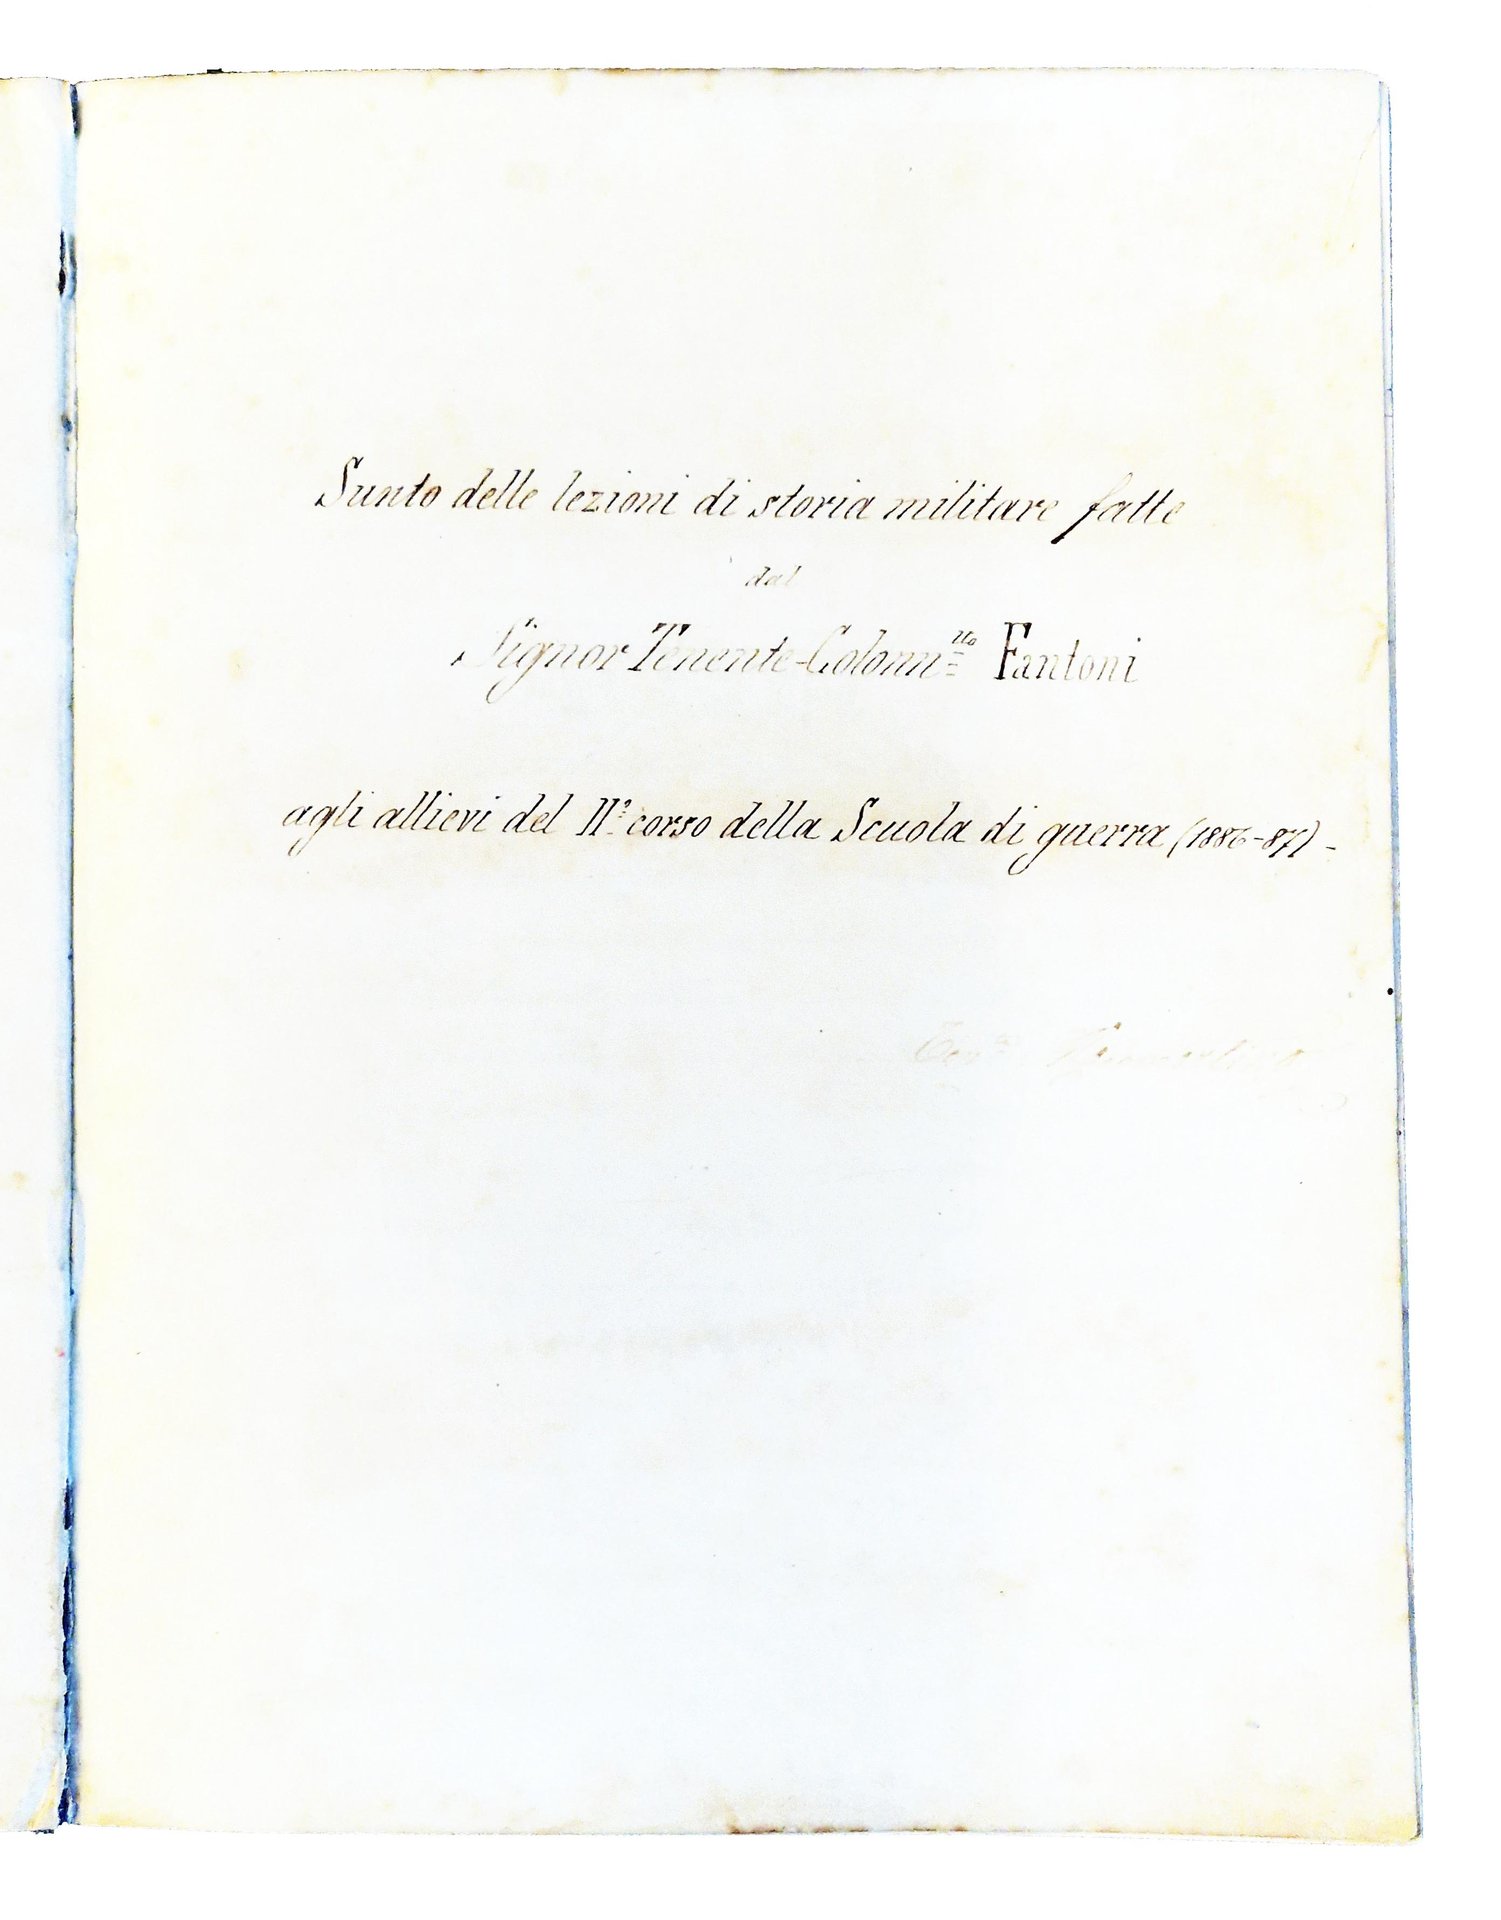 Sunto delle lezioni di storia militare fatte
dal
Signor Tenente-Colonn.llo Fantoni
agli allievi del II.° corso della Scuola di guerra (1886-87) -